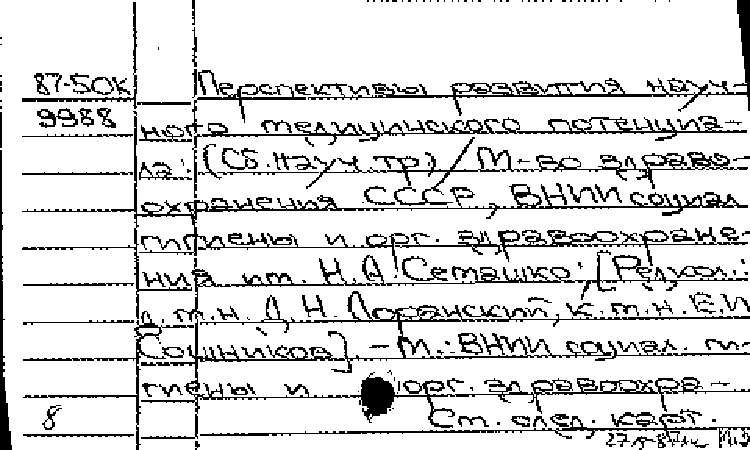 87-50К Перспективы развития науч-
9988 ного медицинского потенциа-
ла: (Сб. науч. тр) / М-во здраво-
охранения СССР, ВНИИ социал
гигиены и орг. здравоохране-
ния им. Н. А. Семашко; [Редкол.:
д. м. н. Д. Н. Лоранский, к. м. н. Е. И
Сошников]. - М.: ВНИИ социал. ги-
гиены и орг. здравоохра-
8 Ст. след. карт.